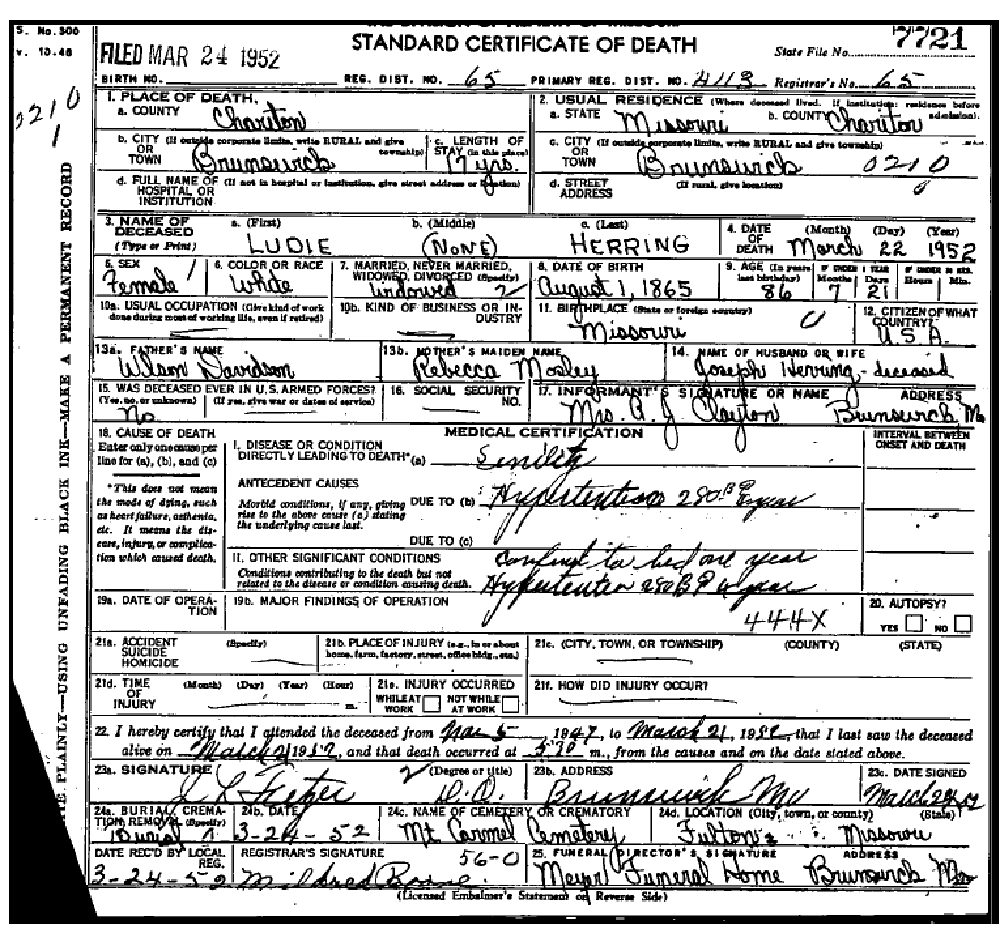 S. No. 300
v. 10.48
FILED MAR 24 1952
STANDARD CERTIFICATE OF DEATH
State File No. 7721
BIRTH NO.
REG. DIST. NO. 65
PRIMARY REG. DIST. NO. 4113
Registrar's No. 65
0210
1
1. PLACE OF DEATH.
a. COUNTY Chariton
2. USUAL RESIDENCE (Where deceased lived. If institution: residence before admission).
a. STATE Missouri b. COUNTY Chariton
b. CITY (If outside corporate limits, write RURAL and give township) OR TOWN Brunswick
c. LENGTH OF STAY (in this place) 17 yrs.
c. CITY (If outside corporate limits, write RURAL and give township) OR TOWN Brunswick 0210
d. FULL NAME OF (If not in hospital or institution, give street address or location) HOSPITAL OR INSTITUTION
d. STREET ADDRESS (If rural, give location)
3. NAME OF DECEASED (Type or Print)
a. (First) LUDIE
b. (Middle) (NONE)
c. (Last) HERRING
4. DATE OF DEATH (Month) (Day) (Year) March 22 1952
5. SEX Female 1
6. COLOR OR RACE White
7. MARRIED, NEVER MARRIED, WIDOWED, DIVORCED (Specify) Widowed 2
8. DATE OF BIRTH August 1, 1865
9. AGE (In years last birthday) 86
IF UNDER 1 YEAR Months 7 Days 21
IF UNDER 24 HRS. Hours Min.
10a. USUAL OCCUPATION (Give kind of work done during most of working life, even if retired)
10b. KIND OF BUSINESS OR INDUSTRY
11. BIRTHPLACE (State or foreign country) Missouri 0
12. CITIZEN OF WHAT COUNTRY? U.S.A.
13a. FATHER'S NAME Wilson Davidson
13b. MOTHER'S MAIDEN NAME Rebecca Mosley
14. NAME OF HUSBAND OR WIFE Joseph Herring - deceased
15. WAS DECEASED EVER IN U.S. ARMED FORCES? (Yes, no, or unknown) (If yes, give war or dates of service) No
16. SOCIAL SECURITY NO.
17. INFORMANT'S SIGNATURE OR NAME ADDRESS
Mrs. A. J. Clayton Brunswick, Mo
18. CAUSE OF DEATH
Enter only one cause per line for (a), (b), and (c)
*This does not mean the mode of dying, such as heart failure, asthenia, etc. It means the disease, injury, or complication which caused death.
MEDICAL CERTIFICATION
INTERVAL BETWEEN ONSET AND DEATH
I. DISEASE OR CONDITION DIRECTLY LEADING TO DEATH* (a) Senility
ANTECEDENT CAUSES
Morbid conditions, if any, giving rise to the above cause (a) stating the underlying cause last.
DUE TO (b) Hypertention 280 BP
DUE TO (c)
II. OTHER SIGNIFICANT CONDITIONS
Conditions contributing to the death but not related to the disease or condition causing death.
confined to bed one year
Hypertention 280 BP
19a. DATE OF OPERATION
19b. MAJOR FINDINGS OF OPERATION
444X
20. AUTOPSY? YES NO
21a. ACCIDENT SUICIDE HOMICIDE (Specify)
21b. PLACE OF INJURY (e.g., in or about home, farm, factory, street, office bldg., etc.)
21c. (CITY, TOWN, OR TOWNSHIP) (COUNTY) (STATE)
21d. TIME OF INJURY (Month) (Day) (Year) (Hour) m.
21e. INJURY OCCURRED WHILE AT WORK NOT WHILE AT WORK
21f. HOW DID INJURY OCCUR?
22. I hereby certify that I attended the deceased from 5, 1947, to March 21, 1952, that I last saw the deceased
alive on March 21 1952, and that death occurred at m., from the causes and on the date stated above.
23a. SIGNATURE (Degree or title) D.O.
23b. ADDRESS Brunswick Mo
23c. DATE SIGNED March 24 52
24a. BURIAL, CREMATION, REMOVAL (Specify) Burial
24b. DATE 3-24-52
24c. NAME OF CEMETERY OR CREMATORY Mt Carmel Cemetery
24d. LOCATION (City, town, or county) (State) Fulton, Missouri
DATE REC'D BY LOCAL REG. 3-24-52
REGISTRAR'S SIGNATURE 56-0
Mildred
25. FUNERAL DIRECTOR'S SIGNATURE ADDRESS
Meyer Funeral Home Brunswick Mo
(Licensed Embalmer's Statement on Reverse Side)
PLAINLY—USING UNFADING BLACK INK—MAKE A PERMANENT RECORD